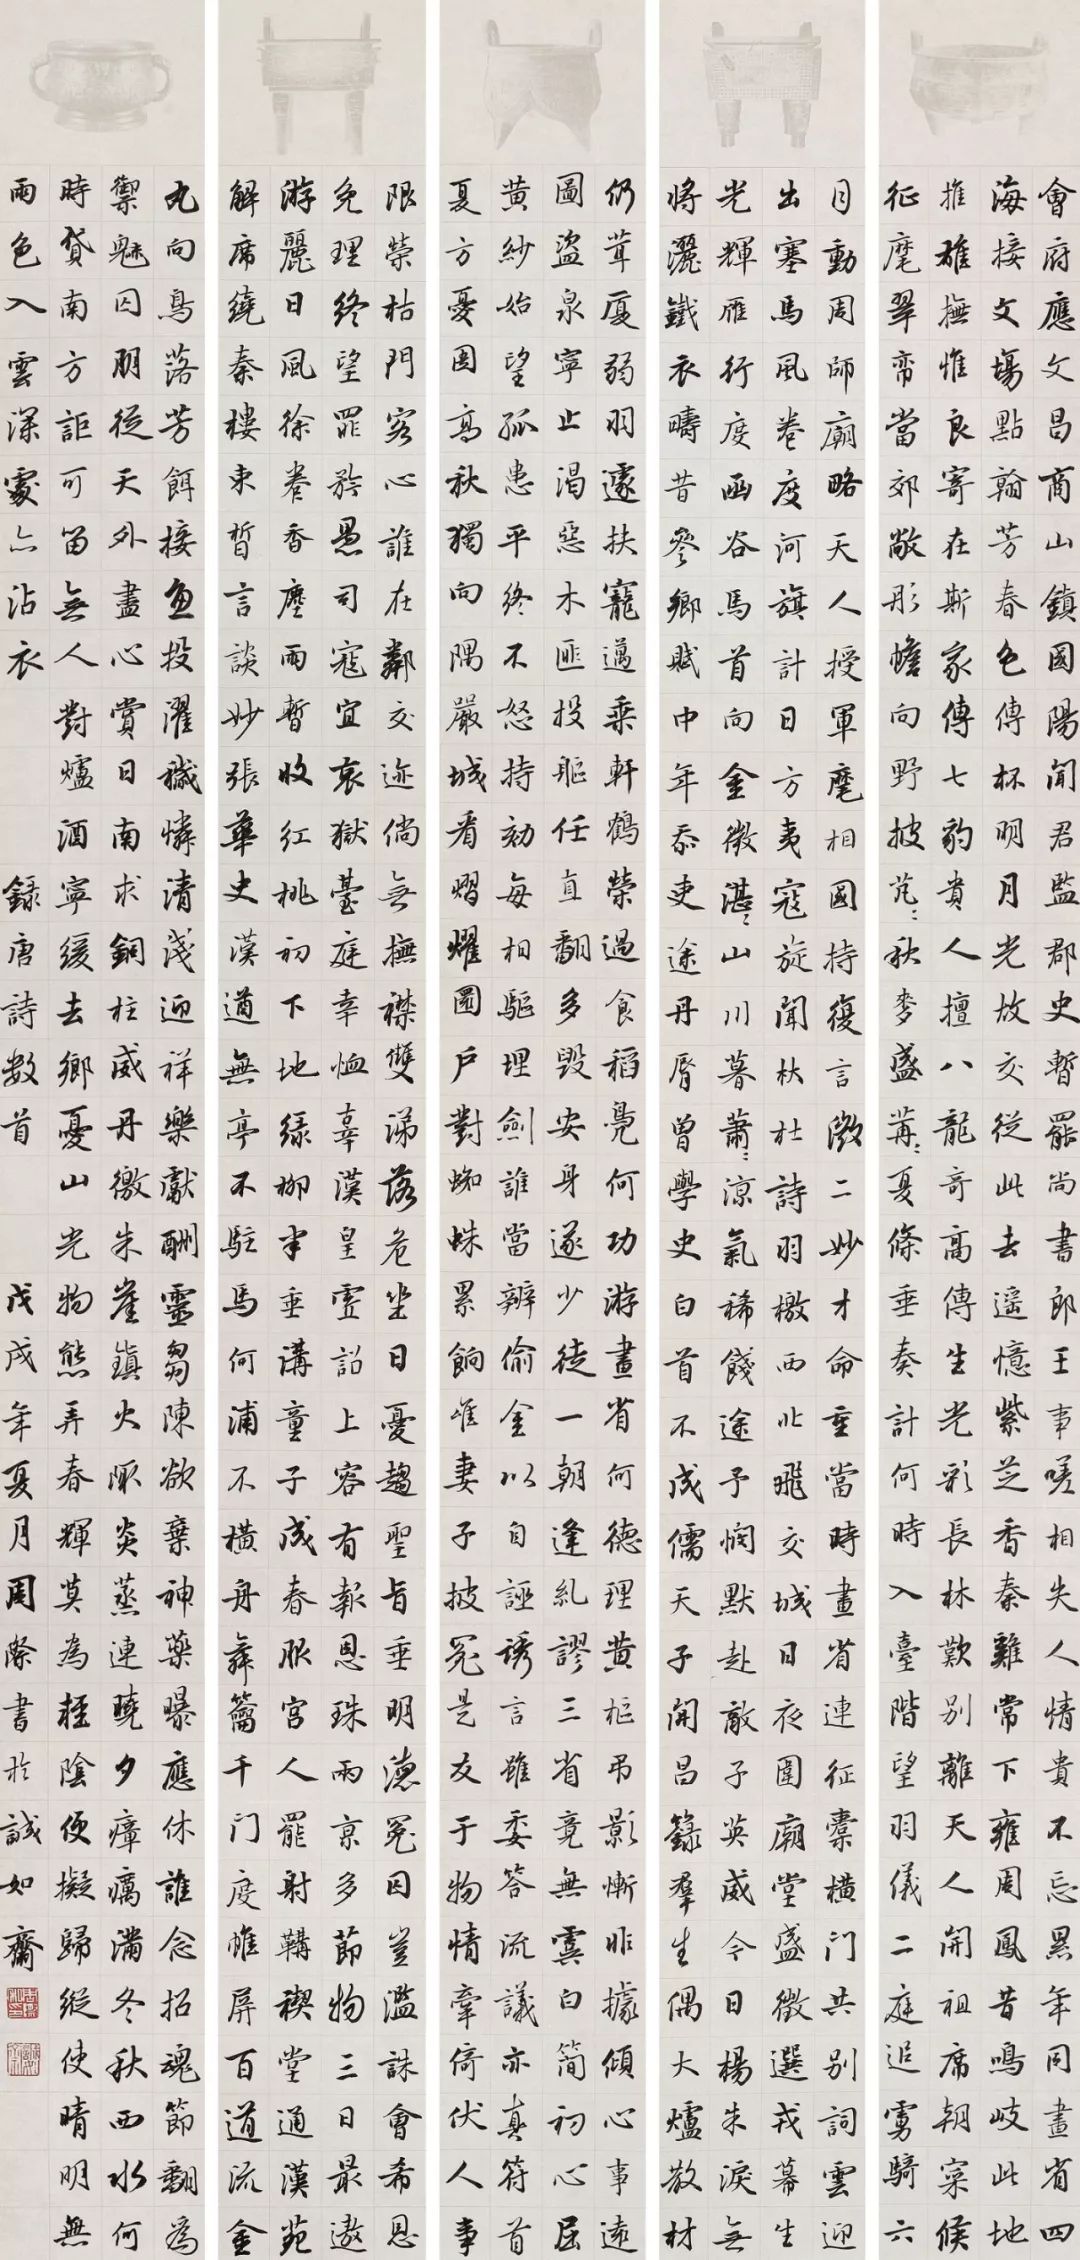 會府應文昌商山鎮國陽聞君監郡史暫罷尚書郎王事嗟相失人情貴不忘累年同畫省四
海接文場點翰芳春色傳杯明月光故交從此去遙憶紫芝香秦雞常下雍周鳳昔鳴岐此地
推雄撫惟良寄在斯家傳七豹貴人擅八龍奇高傳生光彩長林歎別離天人開祖席朝寀候
征麾翠帟當郊敞彤幨向野披茫〻秋麥盛苒〻夏條垂奏計何時入臺階望羽儀二庭追虜騎六
月動周師廟略天人授軍麾相國持復言徵二妙才命重當時畫省連征橐橫門共別詞雲迎
出塞馬風卷度河旗計日方夷寇旋聞杕杜詩羽檄西北飛交城日夜圍廟堂盛徵選戎幕生
光輝雁行度函谷馬首向金微湛〻山川暮蕭〻涼氣稀餞途予憫默赴敵子英威今日楊朱淚無
將灑鐵衣疇昔參鄉賦中年忝吏途丹脣曾學史白首不成儒天子開昌籙羣生偶大爐散材
仍葺廈弱羽遽扶寵邁乘軒鶴榮過食稻鳧何功游畫省何德理黃樞弔影慚非據傾心事遠
圖盜泉寧止渴惡木匪投軀任直翻多毀安身遂少徒一朝逢糺謬三省竟無虞白簡初心屈
黃紗始望孤患平終不怒持劾每相驅埋劍誰當辨偷金以自誣誘言雖委答流議亦真符首
夏方憂圄高秋獨向隅嚴城看熠耀圜戶對蜘蛛累餉唯妻子披冤是友于物情牽倚伏人事
限榮枯門客心誰在鄰交迹倘無撫襟雙涕落危坐日憂趨聖旨垂明德冤囚豈濫誅會希恩
免理終望罪矜愚司寇宜哀獄臺庭幸恤辜漢皇虛詔上容有報恩珠兩京多節物三日最遨
游麗日風徐卷香塵雨暫收紅桃初下地綠柳半垂溝童子成春服宮人罷射鞲禊堂通漢苑
解席繞秦樓束皙言談妙張華史漢遒無亭不駐馬何浦不橫舟舞籥千門度帷屏百道流金
丸向鳥落芳餌接魚投濯穢憐清淺迎祥樂獻酬靈芻陳欲棄神藥曝應休誰念招魂節翻為
禦魅囚朋從天外盡心賞日南求銅柱威丹徼朱崖鎮火陬炎蒸連曉夕瘴癘滿冬秋西水何
時貸南方詎可留無人對爐酒寧緩去鄉憂山光物態弄春輝莫為輕陰便擬歸縱使晴明無
雨色入雲深處亦沾衣 錄唐詩數首 戊戌年夏月周際書於誠如齋